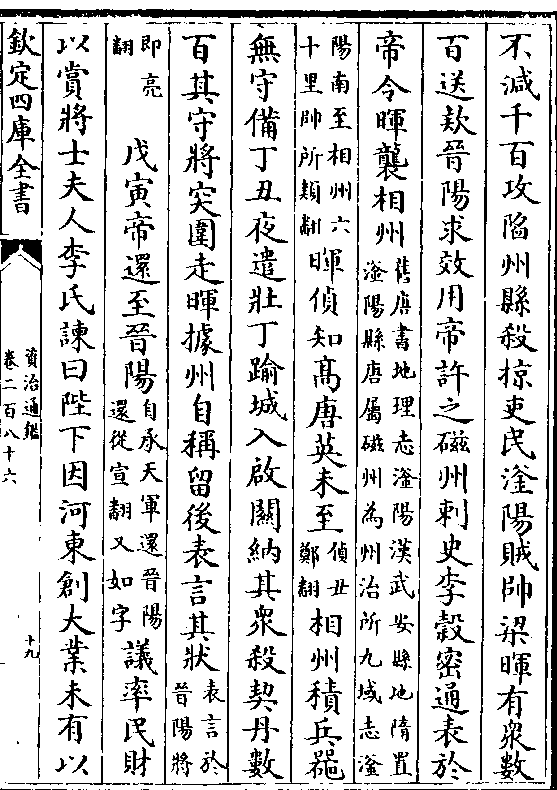 不減千百攻陷州縣殺掠吏民滏陽賊帥梁暉有衆數
百送欵晉陽求效用帝許之磁州刺史李縠密通表於
帝令暉襲相州舊唐書地理志滏陽漢武安縣地隋置
滏陽縣唐屬磁州為州治所九域志滏
陽南至相州六
十里帥所類翻暉偵知髙唐英未至偵丑
鄭翻相州積兵噐
無守備丁丑夜遣壯丁踰城入啟關納其衆殺契丹數
百其守將突圍走暉據州自稱留後表言其狀表言於
晉陽將
即亮
翻戊寅帝還至晉陽自承天軍還晉陽
還從宣翻又如字議率民財
以賞將士夫人李氏諫曰陛下因河東創大業未有以
欽定四庫全書
資治通鑑
卷二百八十六
十九